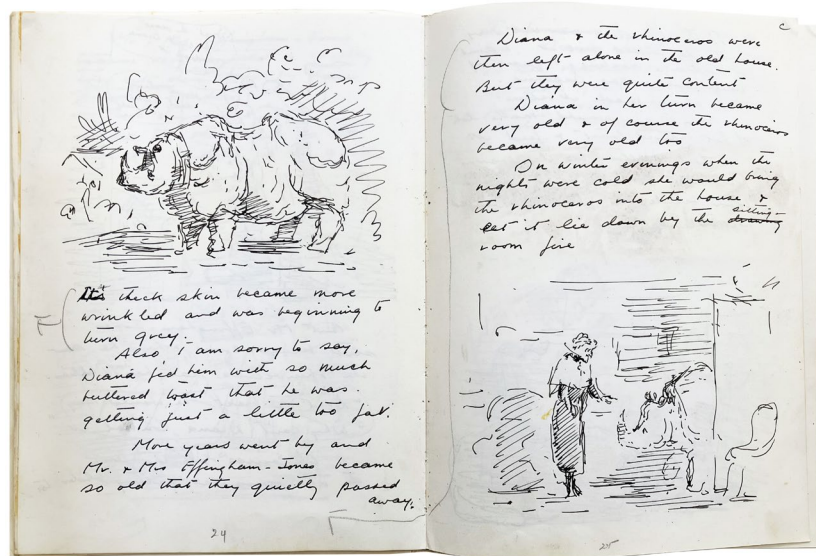 It's thick skin became more
wrinkled and was beginning to
turn grey.
Also, i am sorry to say,
Diana fed him with so much
buttered toast that he was
getting just a little too fat.
More years went by and
Mr. & Mrs Effingham-Jones became
so old that they quietly passed
away.
24
c
Diana & the rhinoceros were
then left alone in the old house.
But they were quite content
Diana in her turn became
very old & of course the rhinoceros
became very old too
On winter evenings when the
nights were cold she would bring
the rhinoceros into the house &
let it lie down by the drawing sitting-
room fire
25